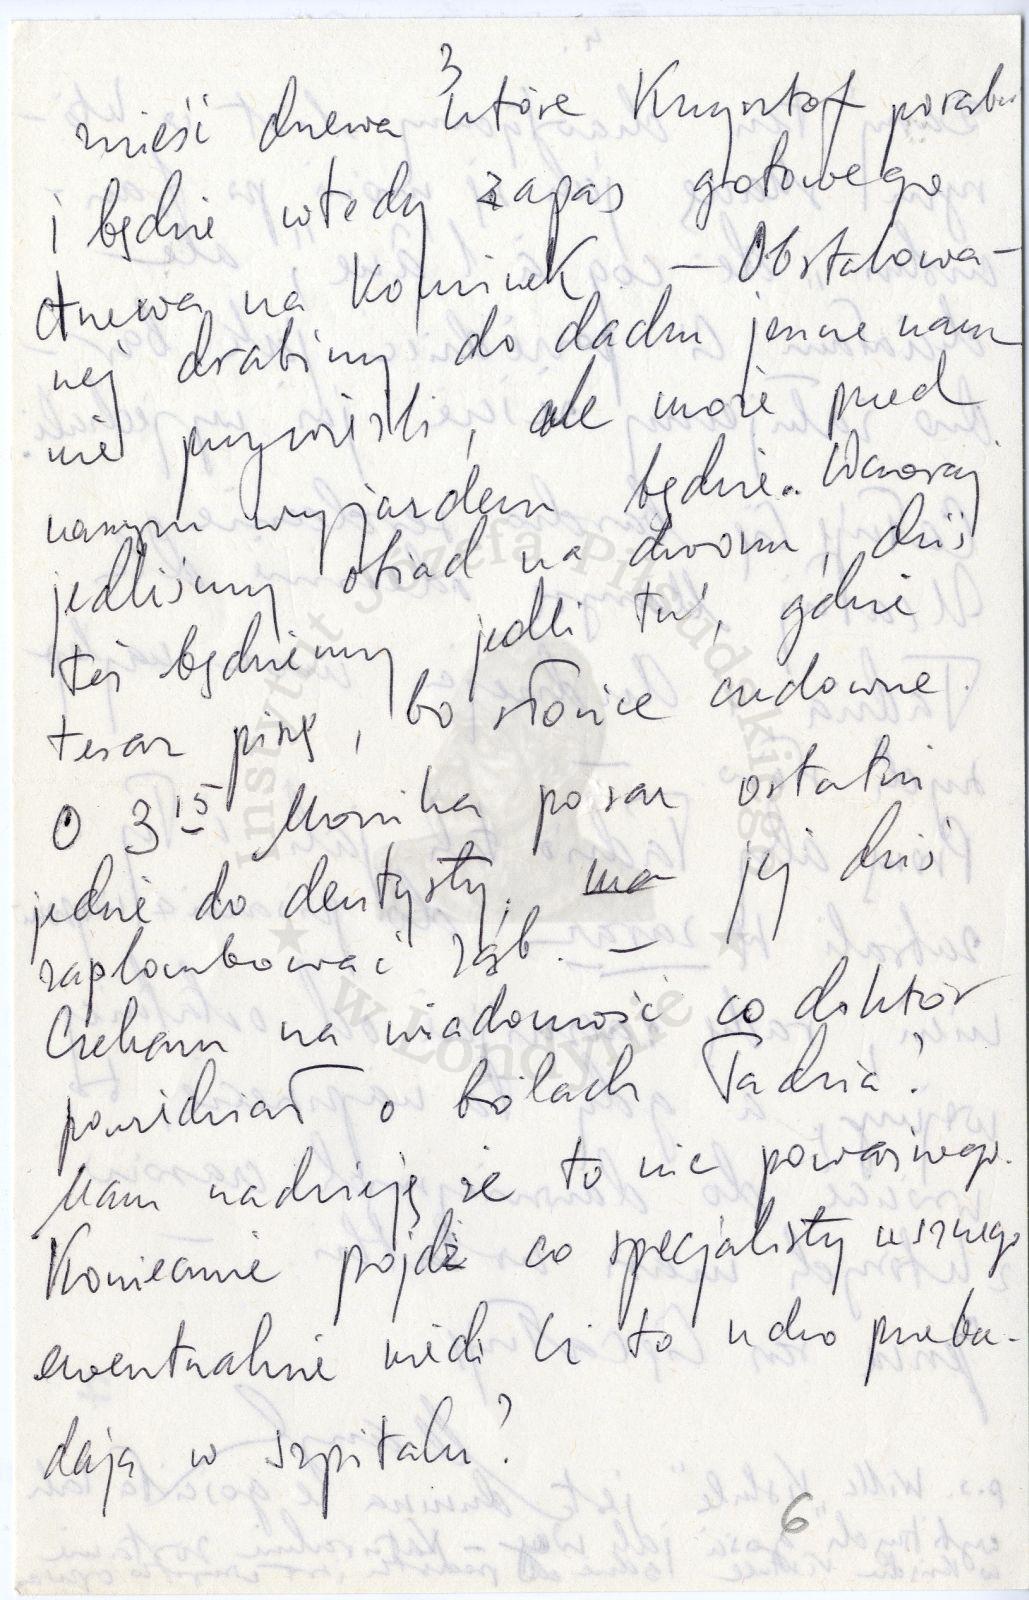 3
mieść drzewa które Krzysztof porabie
i będzie wtedy zapas gotowego
drzewa na kominek. – Obstalowa-
nej drabiny do dachu jeszcze nam
nie przywieźli, ale może przed
naszym wyjazdem będzie. Wczoraj
jedliśmy obiad na dworze, dziś
też będziemy jedli tu, gdzie
teraz piszę, bo słońce cudowne.
O 3 15 Monika po raz ostatni
jedzie do dentysty, ma jej dziś
zaplombować ząb. –
Czekam na wiadomość co doktór
powiedział o bólach Tadzia?
Mam nadzieję że to nic poważnego.
Koniecznie pójdź do specjalisty usznego
ewentualnie niech Ci to ucho zbada-
dają w szpitalu?
6
Instytut Józefa Piłsudskiego
w Londynie